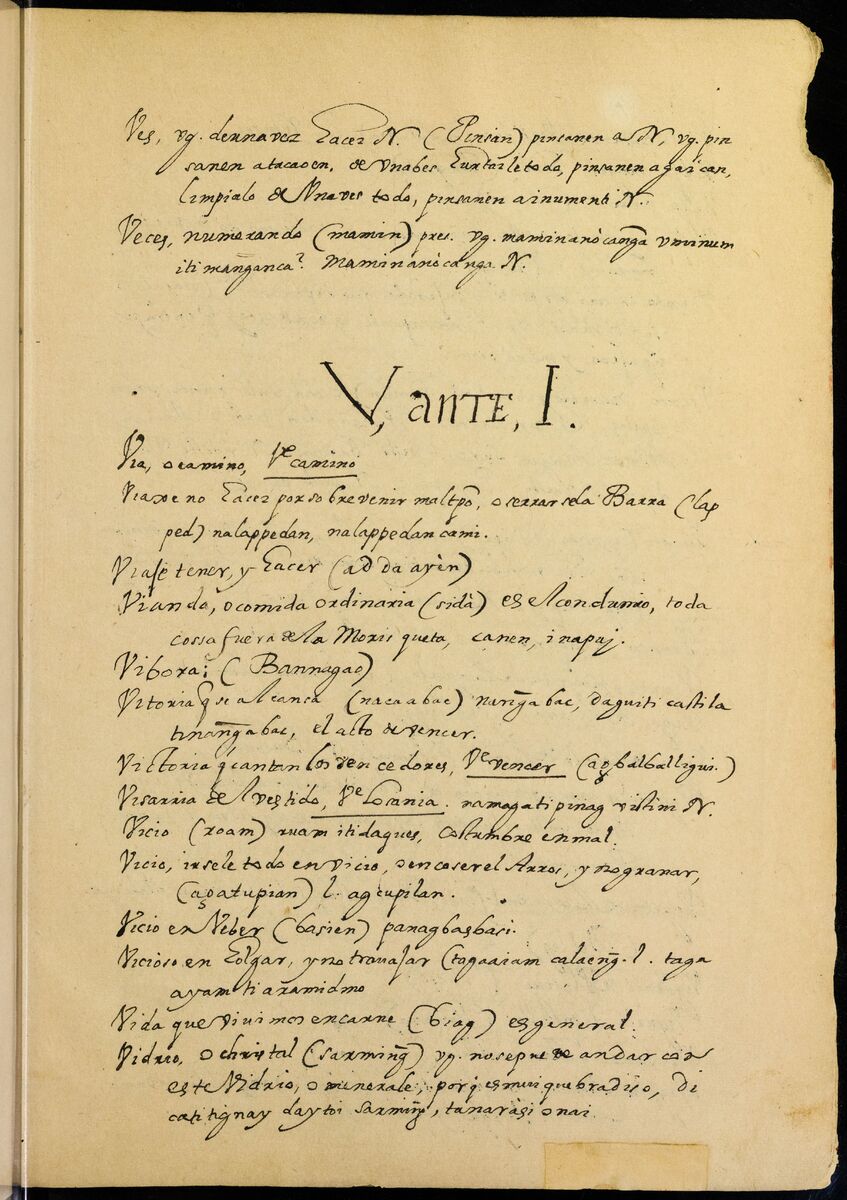 Ves, vg. de una vez hacer N. (Pinsan) pinsanen a N, vg. pin
sanen a tacaoen, de vna bes hurtaile todo, pinsanen agaican,
limpialo de Vna ves todo, pinsanen ainumenti N.
Veces, numerando (mamin) pres. vg. maminanò canga vminum
iti manganca? maminanò canga N.
V, ANTE, I.
Via, o camino, Ve camino
Viaxe no hacer por sobrevenir mal tpo, o serrarse la Barra (lap
ped) nalappedan, nalappedan cami.
Viaje tener, y hacer (adda ayèn)
Vianda, o comida ordinaria (sidà) es el condumio, toda
cossa fuera de la Morisqueta, canen, inapuj.
Vibora: (Bannagao)
Vitoria q se alcansa (nacaabac) nangabac, daguiti castila
tinangabac, el acto de vencer.
Victoria q cantan los vencedores, Ve vencer (agbalballigui.)
Visarria de el vestido, Ve Loçania. namagati pinag vistini N.
Vicio (roam) ruam iti daques, costumbre en mal.
Vicio, irsele todo en vicio, o en coser el Arros, y no granar,
(agatupian) l. ageupilan.
Vicio en Veber (basien) panagbasbasi.
Vicioso en holgar, y no travajar (tagaaiam calaeng. l. taga
ayam ti aramidmo
Vida que viuimos en carne (biag) es general.
Vidrio, o christal (sarming) vg. no se puede andar con
este Vidrio, o minerale, porq es mui quebradiso, di
catitignay daytoi sarming, tanarasi onai.